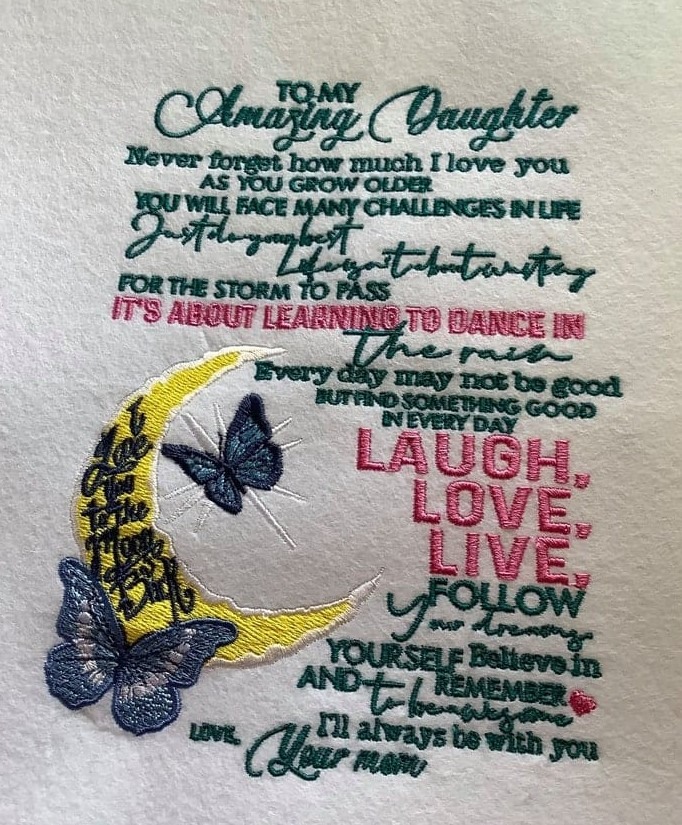 TO MY
Amazing Daughter
Never forget how much I love you
AS YOU GROW OLDER
YOU WILL FACE MANY CHALLENGES IN LIFE
Just do your best
Life isn't about waiting
FOR THE STORM TO PASS
IT'S ABOUT LEARNING TO DANCE IN
the rain
Every day may not be good
BUT FIND SOMETHING GOOD
IN EVERY DAY
LAUGH,
LOVE,
LIVE,
FOLLOW
Your dreams
YOURSELF Believe in
AND REMEMBER
to be awesome
I'll always be with you
LOVE,
Your mom
I
Love
You
to the
Moon
&
Back